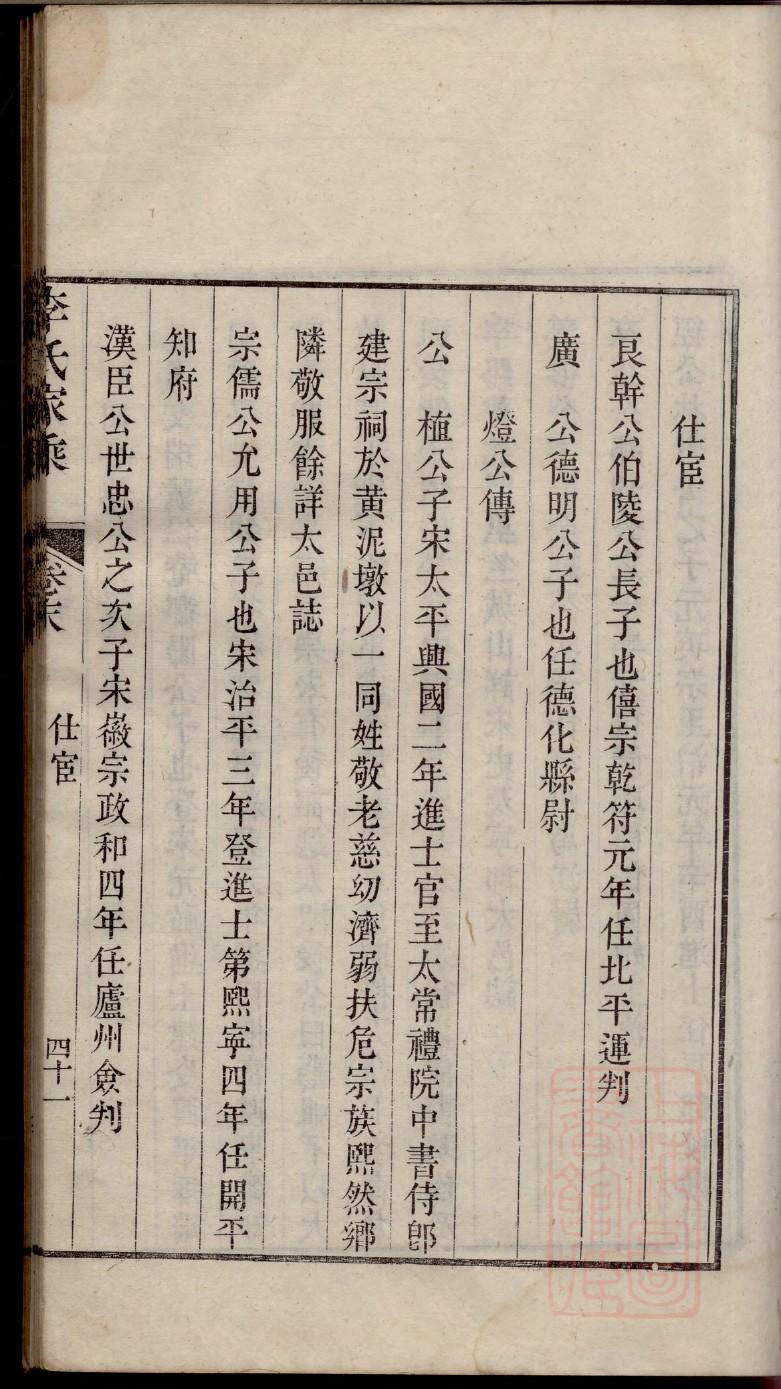 仕宦
良幹公伯陵公長子也僖宗乾符元年任北平運判
廣　公德明公子也任德化縣尉
燈公傳
公　植公子宋太平興國二年進士官至太常禮院中書侍郎
建宗祠於黃泥墩以一同姓敬老慈幼濟弱扶危宗族熙然鄉
隣敬服餘詳太邑誌
宗儒公允用公子也宋治平三年登進士第熙寧四年任開平
知府
漢臣公世忠公之次子宋徽宗政和四年任廬州僉判
李氏家乘
卷末
仕宦
四十一